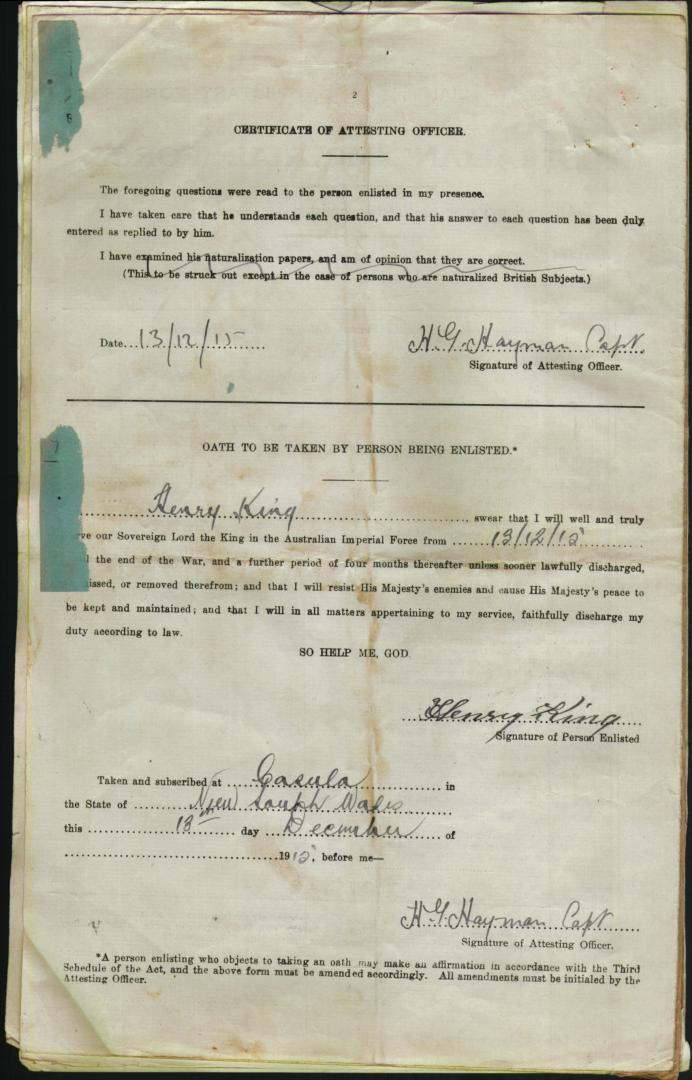 2
CERTIFICATE OF ATTESTING OFFICER.
The foregoing questions were read to the person enlisted in my presence.
I have taken care that he understands each question, and that his answer to each question has been duly
entered as replied to by him.
I have examined his naturalization papers, and am of opinion that they are correct.
(This to be struck out except in the case of persons who are naturalized British Subjects.)
Date...13/12/15
H.G. Hayman Capt.
Signature of Attesting Officer.
OATH TO BE TAKEN BY PERSON BEING ENLISTED.*
Henry King swear that I will well and truly
ve our Sovereign Lord the King in the Australian Imperial Force from 13/12/15
l the end of the War, and a further period of four months thereafter unless sooner lawfully discharged,
issed, or removed therefrom; and that I will resist His Majesty's enemies and cause His Majesty's peace to
be kept and maintained; and that I will in all matters appertaining to my service, faithfully discharge my
duty according to law.
SO HELP ME, GOD.
Henry King
Signature of Person Enlisted
Taken and subscribed at Casula in
the State of New South Wales
this 13th day December of
1915, before me—
H.G. Hayman Capt
Signature of Attesting Officer.
*A person enlisting who objects to taking an oath may make an affirmation in accordance with the Third
Schedule of the Act, and the above form must be amended accordingly. All amendments must be initialed by the
Attesting Officer.